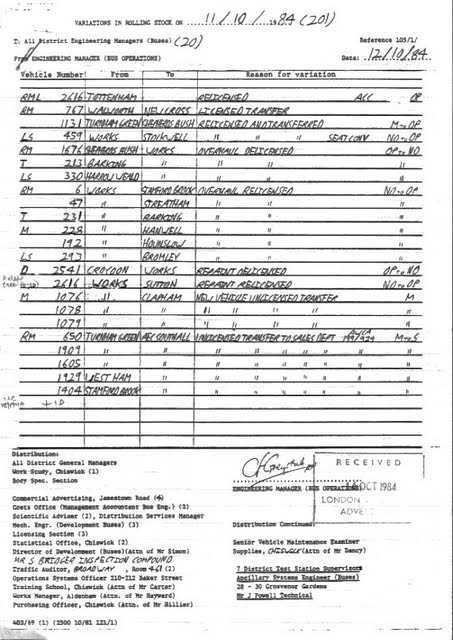 VARIATIONS IN ROLLING STOCK ON 11/10/1984 (201)
To All District Engineering Managers (Buses) (20)
Reference 105/1/
From ENGINEERING MANAGER (BUS OPERATIONS)
Date: 12/10/84
Vehicle Number From To Reason for variation
RML 2616 TOTTENHAM RELICENSED ACC OP
RM 767 WALWORTH NEW CROSS LICENSED TRANSFER
1131 TURNHAM GREEN SHEPHERDS BUSH RELICENSED AND TRANSFERRED M to OP
LS 459 WORKS STOCKWELL " " SEAT CONV NO to OP
RM 1676 SHEPHERDS BUSH WORKS OVERHAUL DELICENSED OP to NO
T 213 BARKING " " " "
LS 330 HARROW WEALD " " " "
RM 6 WORKS STAMFORD BROOK OVERHAUL RELICENSED NO to OP
47 " STREATHAM " " "
T 231 " BARKING " " "
M 228 " HANWELL " " "
192 " HOUNSLOW " " "
LS 293 " BROMLEY " " "
D 2541 CROYDON WORKS REPAINT DELICENSED OP to NO
2616 WORKS SUTTON REPAINT RELICENSED NO to OP
M 1076 " CLAPHAM NEW VEHICLE UNLICENSED TRANSFER M
1078 " " " " " " "
1079 " " " " " " "
RM 650 TURNHAM GREEN AEC SOUTHALL UNLICENSED TRANSFER TO SALES DEPT M to S
1909 " " " " " " " "
1605 " " " " " " " "
1929 WEST HAM " " " " " " "
1404 STAMFORD BROOK " " " " " " "
Distribution:
All District General Managers
Work Study, Chiswick (1)
Body Spec. Section
ENGINEERING MANAGER (BUS OPERATIONS)
RECEIVED
OCT 1984
LONDON
ADVE
Commercial Advertising, Jamestown Road (4)
Costs Office (Management Accountant Bus Eng.) (2)
Scientific Adviser (2), Distribution Services Manager
Mech. Engr. (Development Buses) (3)
Distribution Continued
Licensing Section (3)
Statistical Office, Chiswick (2)
Senior Vehicle Maintenance Examiner
Director of Development (Buses)(Attn of Mr Simon)
Supplies, CHISWICK (Attn of Mr Dancy)
MR S BRIDGER INSPECTION COMPOUND
Traffic Auditor, BROADWAY, Room 451 (2)
7 District Test Station Supervisors
Operations Systems Officer 210-212 Baker Street
Ancillary Systems Engineer (Buses)
Training School, Chiswick (Attn of Mr Carter)
28 - 30 Grosvenor Gardens
Works Manager, Aldenham (Attn of Mr Hayward)
Mr J Powell Technical
Purchasing Officer, Chiswick (Attn of Mr Hillier)
403/69 (1) (2500 10/81 121/1)